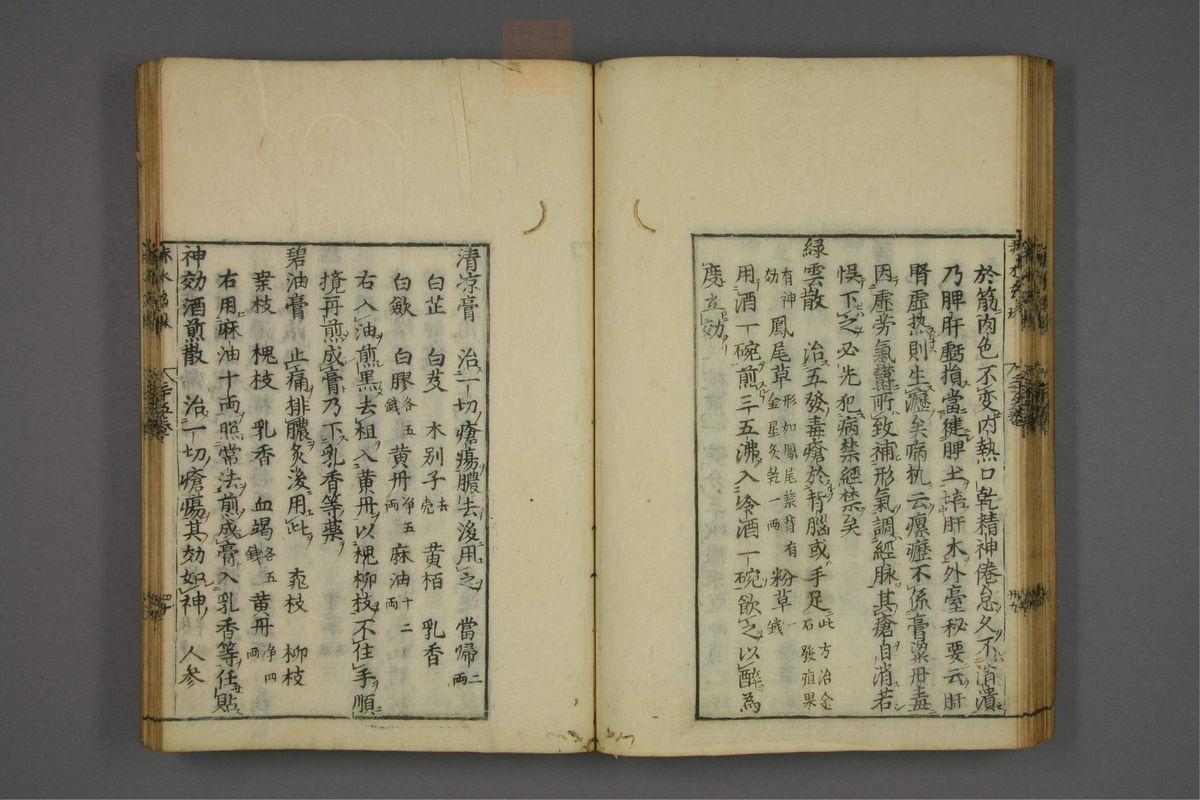 於筋肉色不変内熱口乾精神倦怠久不消潰
乃脾肝虧損當健脾土培肝木外臺秘要云肝
腎虚热則生癧矣病机云瘰癧不係膏粱丹毒
因虚劳氣鬱所致補形氣調經脉其瘡自消若
悞下之必先犯病禁經禁矣
緑雲散 治五發毒瘡於背腦或手足此方治金石發疽果
有神効 鳳尾草形如鳳尾葉背有金星炙乾一両 粉草一錢
用酒一碗煎三五沸入冷酒一碗飲之以醉為
度立効
清凉膏 治一切瘡瘍膿去後用之 當帰二両
白芷 白芨 木別子去壳 黄栢 乳香
白歛 白膠各五錢 黄丹净五両 麻油十二両
右入油煎黒去柤入黄丹以槐柳枝不住手順
搅再煎成膏乃下乳香等藥
碧油膏 止痛排膿灸後用此 桃枝 柳枝
葉枝 槐枝 乳香 血竭各五錢 黄丹净四両
右用麻油十両照常法煎成膏入乳香等任貼
神効酒煎散 治一切瘡瘍其効如神 人参